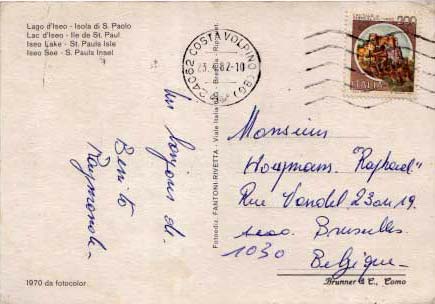 Lago d'Iseo - Isola di S. Paolo
Lac d'Iseo - Ile de St. Paul
Iseo Lake - St. Pauls Isle
Iseo See - S. Pauls Insel
24062 COSTA VOLPINO (BG)
82-10
ITALIA
Fotoediz. FANTONI-RIVETTA - Viale Italia - Brescia - Ripr.
Un bonjour di
Benito
Raymonde
Monsieur
"Raphaël"
Rue Vandel 23 on 19.
Bruxelles
1030
Belgique
1970 da fotocolor
Brunner & C., Como